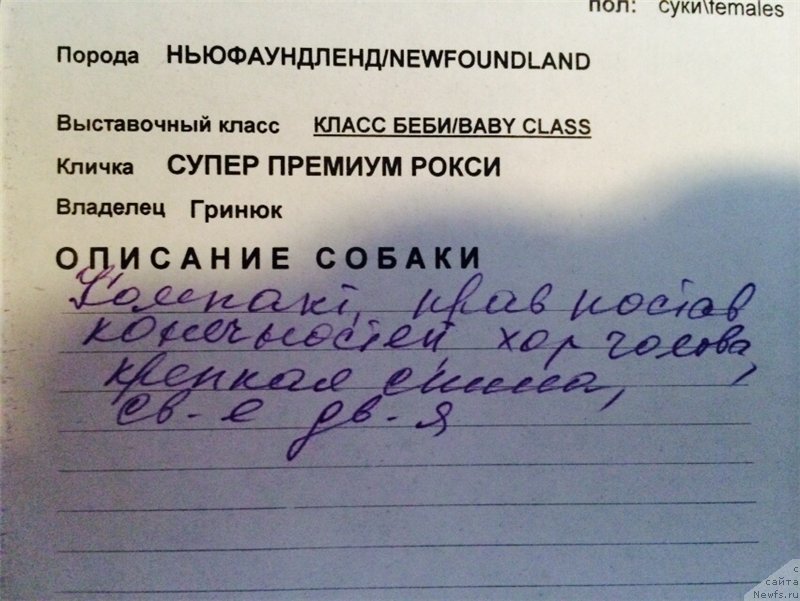 пол: суки\females
Порода НЬЮФАУНДЛЕНД/NEWFOUNDLAND
Выставочный класс КЛАСС БЕБИ/BABY CLASS
Кличка СУПЕР ПРЕМИУМ РОКСИ
Владелец Гринюк
ОПИСАНИЕ СОБАКИ
Компакт, прав постав
конечностей, хор голова,
крепкая спина,
св-е дв-я
с
сайта
Newfs.ru